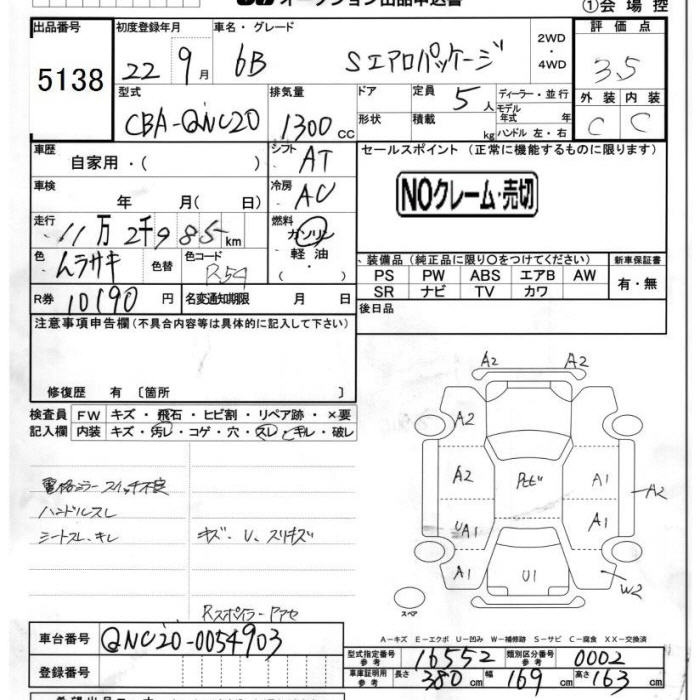 オークション出品申込書
①会場控
出品番号 5138
初度登録年月 22 9月
車名・グレード bB Sエアロパッケージ
2WD・4WD
評価点 3.5
型式 CBA-QNC20
排気量 1300cc
ドア
形状
定員 5人
積載 kg
ディーラー・並行
モデル年式 年式
ハンドル 左・右
外装 内装
C C
車歴 自家用・( )
シフト AT
セールスポイント (正常に機能するものに限ります)
NOクレーム・売切
車検 年 月( 日)
冷房 AC
走行 11万2千985km
燃料 ガソリン・軽油・
色 ムラサキ 色替
色コード R54
R券 10190円
名変通知期限 月 日
、装備品(純正品に限り○をつけてください)
PS PW ABS エアB AW
SR ナビ TV カワ
新車保証書
有・無
後日品
注意事項申告欄(不具合内容等は具体的に記入して下さい)
修復歴 有 〔箇所 〕
検査員記入欄
FW キズ・飛石・ヒビ割・リペア跡・×要
内装 キズ・汚レ・コゲ・穴・スレ・キレ・破レ
電格ミラースイッチ不良
ハンドルスレ
シートスレ、キレ
キズ・U、スリキズ
Rスポイラー
A2 A2
A2
A2 A1 A2
UA1 A1
A1 U1 W2
スペア
A－キズ E－エクボ U－凹み W－補修跡 S－サビ C－腐食 XX－交換済
車台番号 QNC20-0054903
登録番号
型式指定番号 参考 16552
類別区分番号 参考 0002
車庫証明用 参考 長さ 380cm 幅 169cm 高さ 163cm